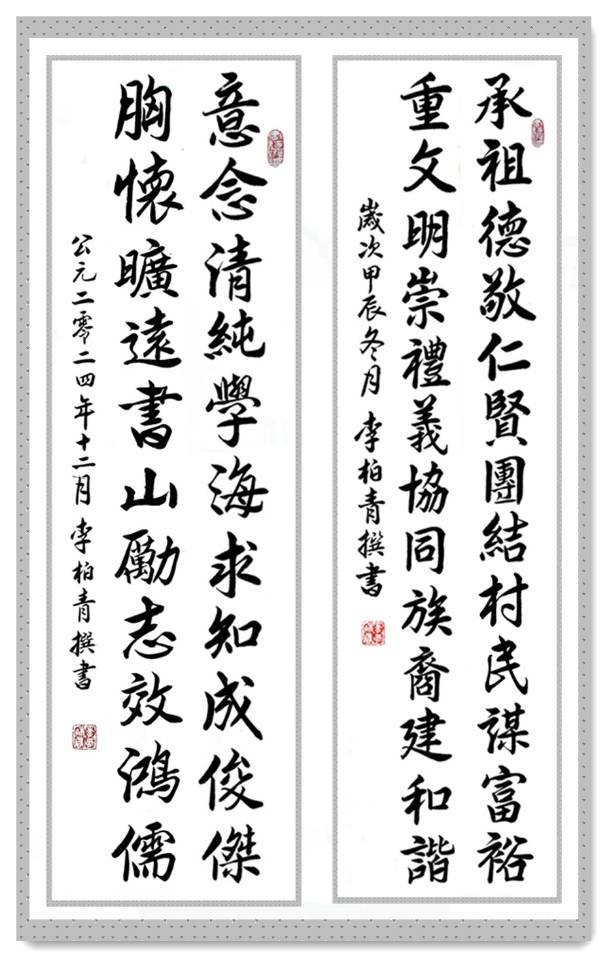 承祖德敬仁賢團結村民謀富裕
重文明崇禮義協同族裔建和諧
歲次甲辰冬月 李柏青撰書
意念清純學海求知成俊傑
胸懷曠遠書山勵志效鴻儒
公元二零二四年十二月 李柏青撰書